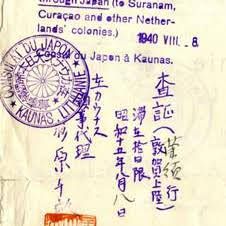 through Japan (to Suranam,
Curaçao and other Nether-
lands' colonies.)
1940 VIII. - 8
Consul du Japon à Kaunas.
CONSULAT DU JAPON
KAUNAS, LITUANIE
査証(敦賀上陸)
行
滞在拾日限
昭和十五年八月八日
在カウナス
領事代理
杉原千畝